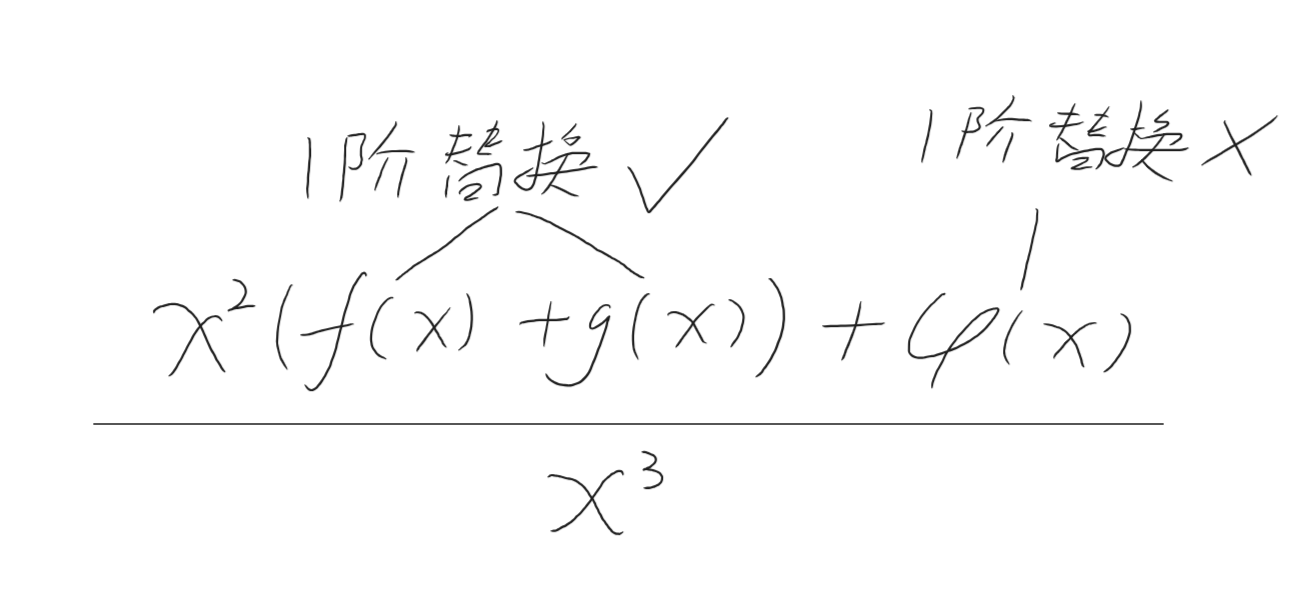 1阶替换 ✓ 1阶替换 ×
x²(f(x) + g(x)) + φ(x)
x³